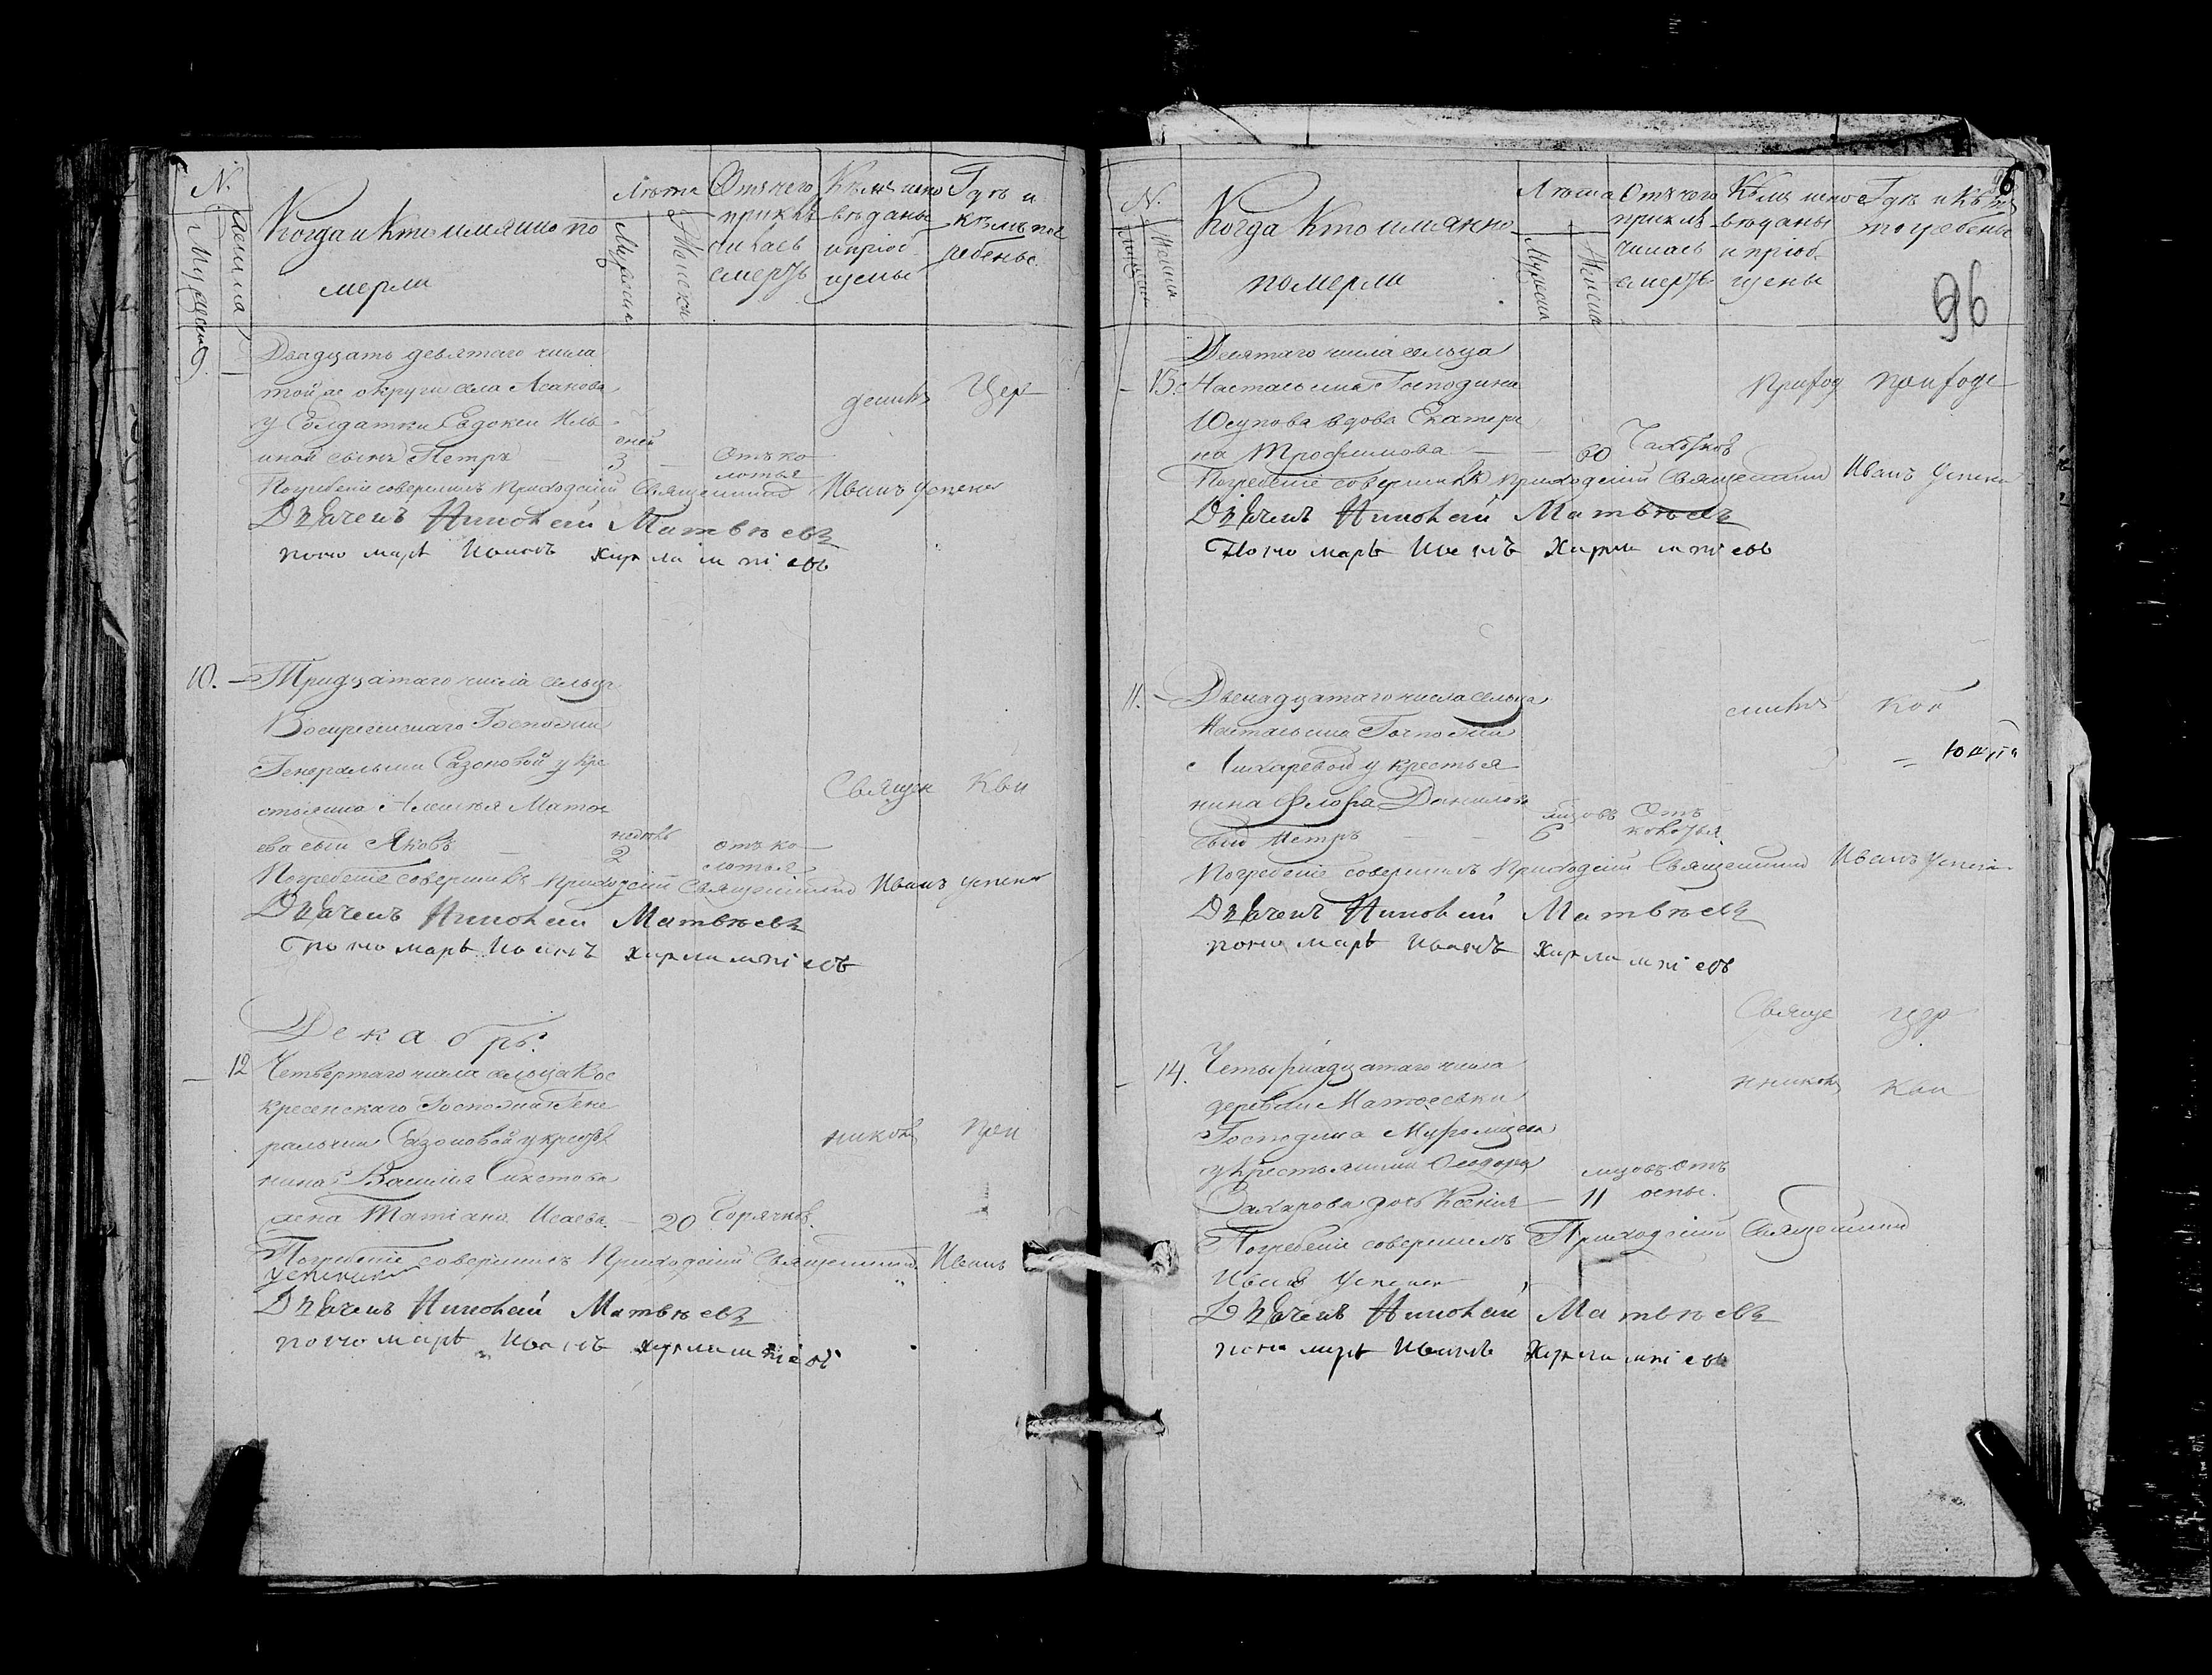 N.
Мужеска
Женска
Когда и Кто имянно по
мерли
Лѣта
Мужеска
Женска
Отъ чего
приклю
чилась
смерть
Кѣмъ испо
вѣданы
и пріоб
щены
Гдѣ и
кѣмъ пог
ребены
Двадцать девятаго числа
той же округи села
у Солдатки Евдокеи Иль
иной сынъ Петръ
дней
3
Отъ ко
лотья
Цер
Погребеніе совершилъ Приходскій Священникъ Иванъ Успенск
Дьячекъ Николай Матвѣевъ
пономарь Иванъ Харлампіевъ
10. Тридцатаго числа сельца
Воскресенскаго Госпожи
Генеральши Сазоновой у кре
стьянина Алексѣя Матве
ева сынъ Яковъ
недѣль
2
отъ ко
лотья
Священ
Кви
Погребеніе совершилъ Приходскій Священникъ Иванъ Успенск
Дьячекъ Николай Матвѣевъ
Пономарь Иванъ Харлампіевъ
Декабрь.
12 Четвертаго числа сельца Вос
кресенскаго Госпожи Гене
ральши Сазоновой у крестья
нина Василія Сикстова
жена Татіана Исаева
20
Горячков.
никомъ
при
Погребеніе совершилъ Приходскій Священникъ Иванъ
Успенскій
Дьячекъ Николай Матвѣевъ
пономарь Иванъ Харлампіевъ
N.
Мужеска
Женска
Когда Кто имянно
померли
Лѣта
Мужеска
Женска
Отъ чего
приклю
чилась
смерть
Кѣмъ испо
вѣданы
и пріоб
щены
Гдѣ и Кѣмъ
погребены
96
96
Десятаго числа сельца
13. Настасьина Господина
Юсупова вдова Екатери
на Трофимова
60
Чахотков
Приход
приходс
Погребеніе совершилъ Приходскій Священникъ Иванъ Успенск
Дьячекъ Николай Матвѣевъ
Пономарь Иванъ Харлампіевъ
11. Двенадцатаго числа сельца
Настасьина Госпожи
Лихаревой у крестья
нина Флора Данилова
сынъ Петръ
мѣсяцовъ
6
Отъ
колотья
Погребеніе совершилъ Приходскій Священникъ Иванъ Успенск
Дьячекъ Николай Матвѣевъ
пономарь Иванъ Харлампіевъ
Свяще
цер
14. Четырнадцатаго числа
деревни Матвеевки
Господина Муромцева
у крестьянина Ѳедора
Захарова дочь Ксенія
11
отъ
оспы.
никомъ
кви
Погребеніе совершилъ Приходскій Священникъ
Иванъ Успенск
Дьячекъ Николай Матвѣевъ
пономарь Иванъ Харлампіевъ